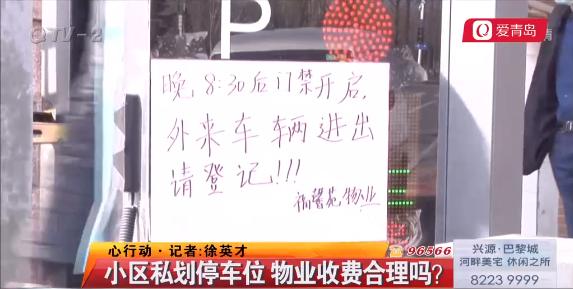 QTV-2
爱青岛
P
晚8:30后门禁开启,
外来车辆进出
请登记!!!
福馨苑物业
心行动·记者:徐英才
96566
小区私划停车位 物业收费合理吗?
兴源·巴黎城
河畔美宅 休闲之所
8223 9999